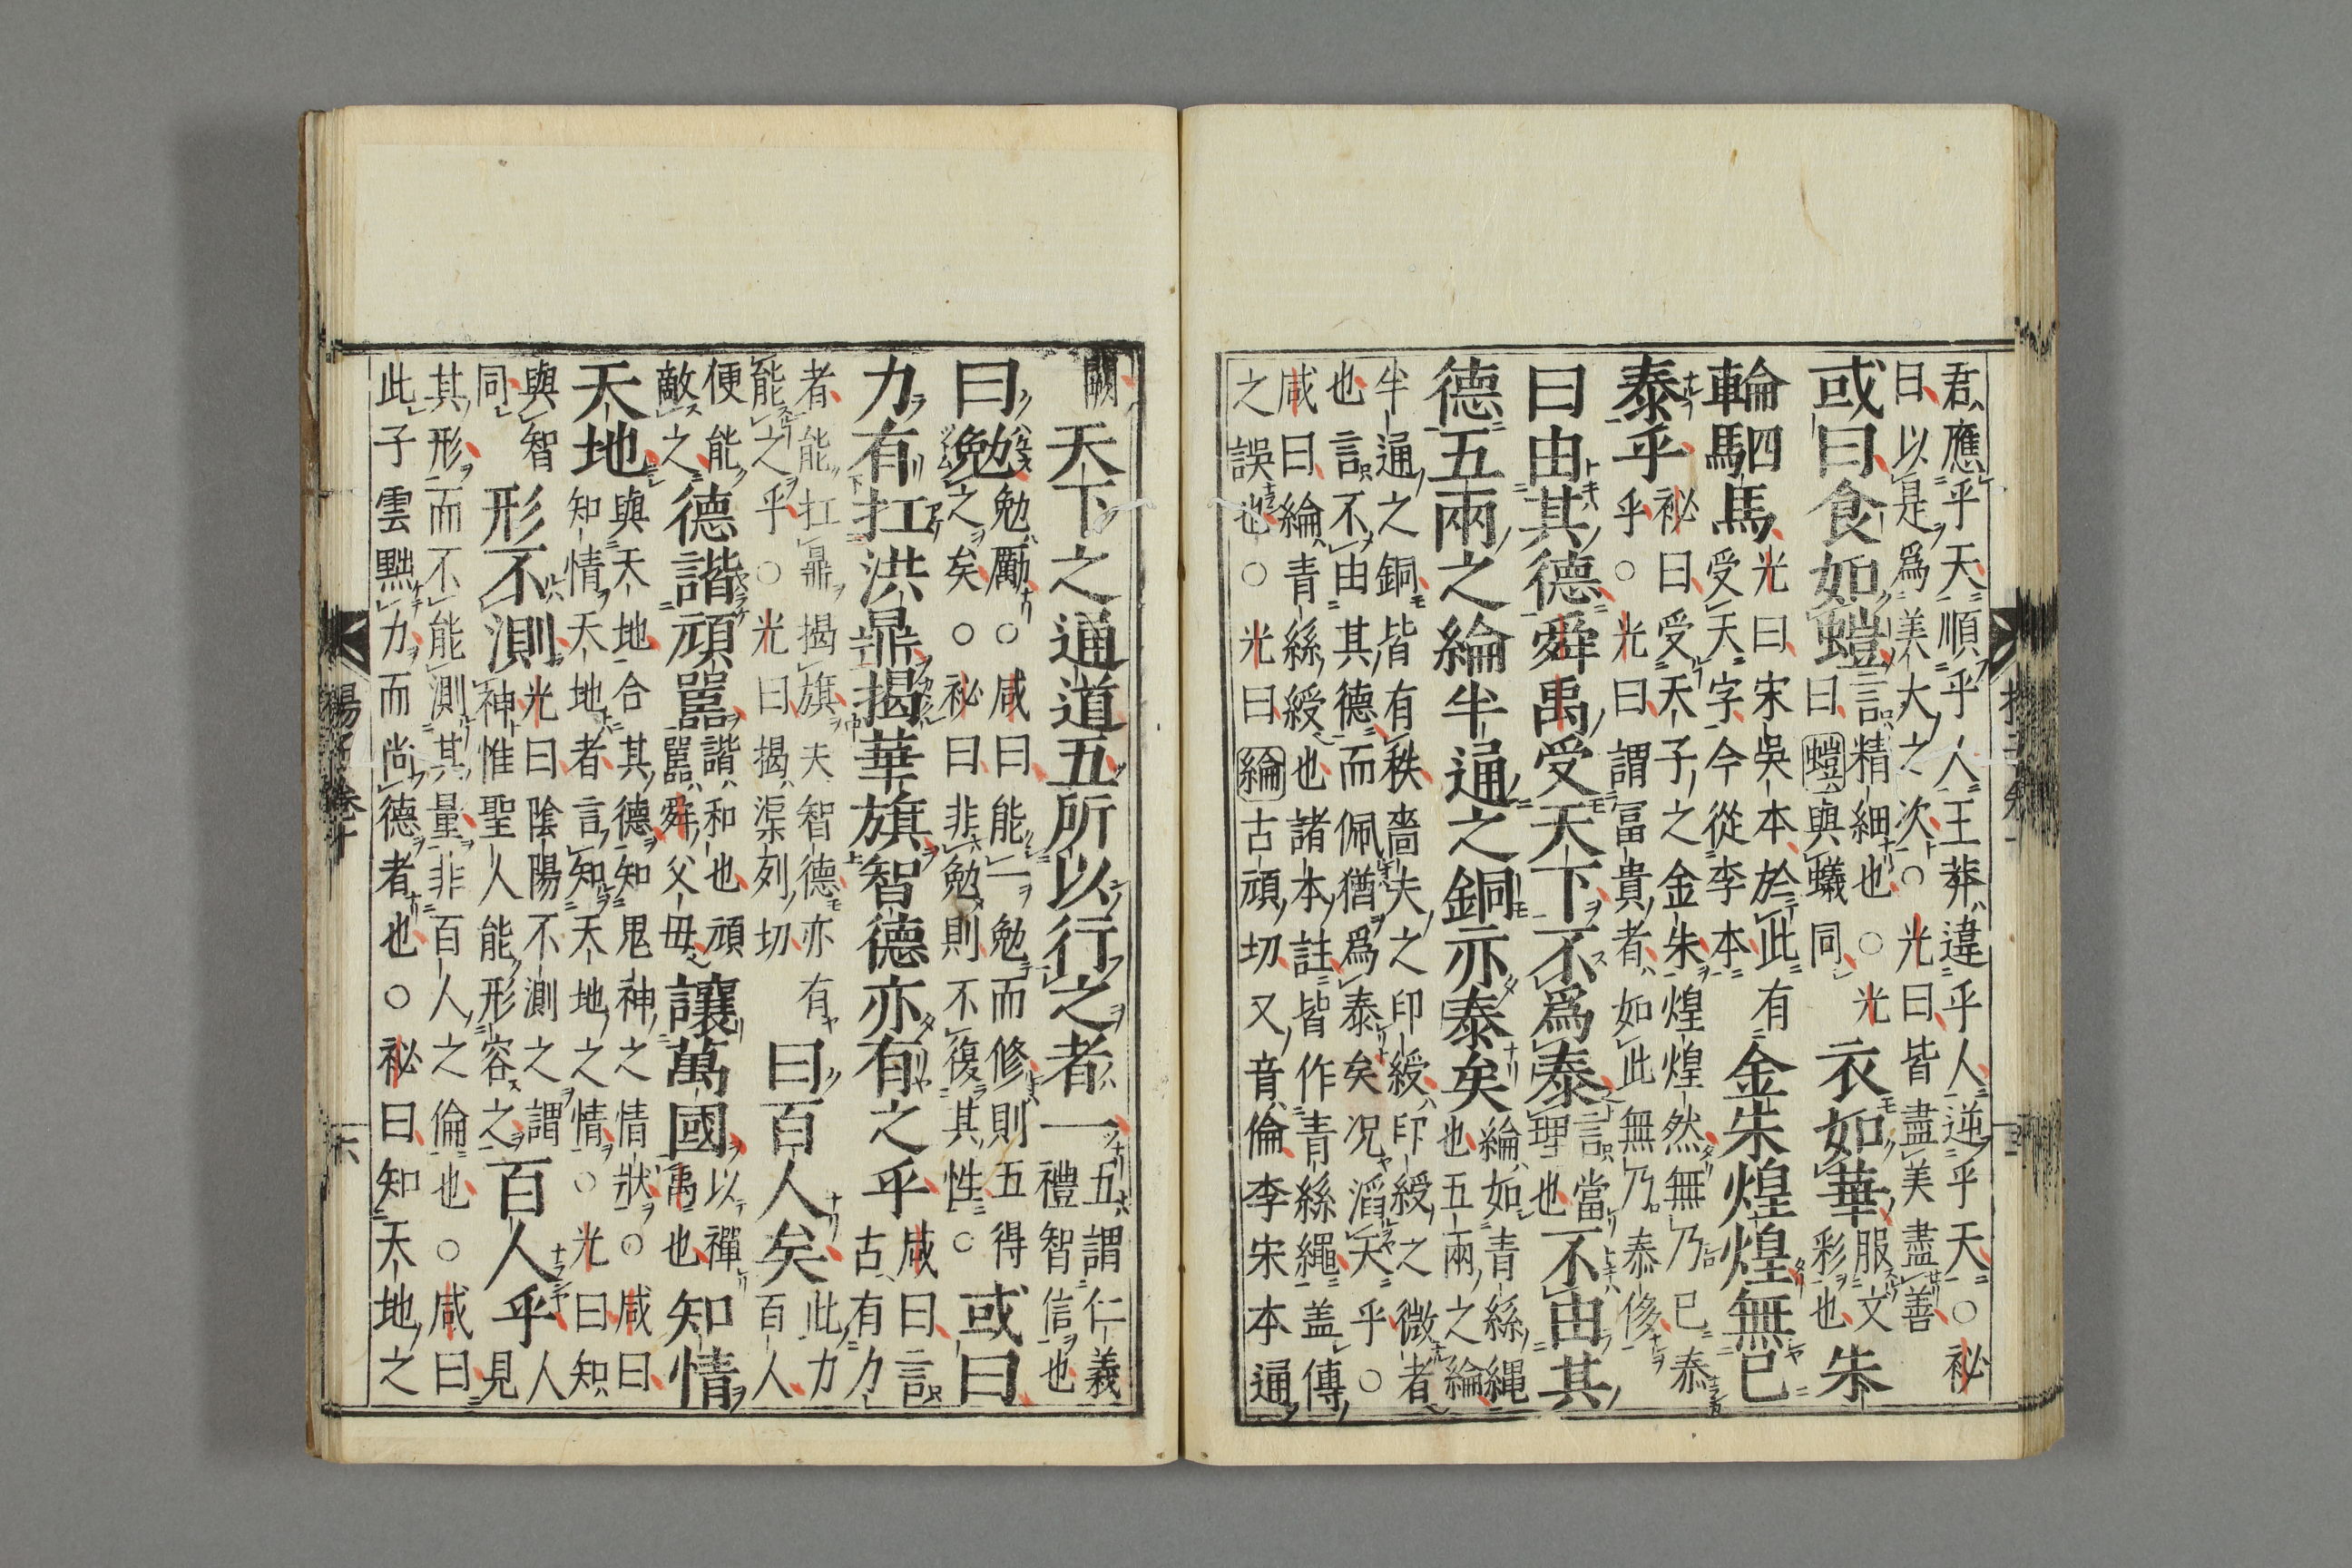 君應乎天順乎人王莽違乎人逆乎天○祕
曰以是爲美大之次○光曰皆盡美盡善
或曰食如螘
言精細也○光
曰螘與蟻同
衣如華
服文
彩也
朱
輪駟馬
光曰宋吳本於此有
受天字今從李本
金朱煌煌無已
泰乎
祕曰受天子之金朱煌煌然無乃已泰
乎○光曰謂富貴者如此無乃泰侈
曰由其德舜禹受天下不爲泰
言當
理也
不由其
德五兩之綸半通之銅亦泰矣
綸如青絲繩
也五兩之綸
半通之銅皆有秩嗇夫之印綬印綬之微者
也言不由其德而佩猶爲泰矣况滔天乎○
咸曰綸青絲綬也諸本註皆作青絲繩盖傳
之誤也○光曰綸古頑切又音倫李宋本通
闕
天下之通道五所以行之者一
五謂仁義
禮智信也
曰勉
勉勵○咸曰能一勉而修則五得
之矣○祕曰非勉則不復其性○
或曰
力有扛洪鼎揭華旗智德亦有之乎
咸曰言
古有力
者能扛鼎揭旗夫智德亦有
能之乎○光曰揭渠列切
曰百人矣
此力
百人
便能
敵之
德諧頑嚚
諧和也頑
嚚舜父母
讓萬國
以禪
禹也
知情
天地
與天地合其德知鬼神之情狀○咸曰
知情天地者言知天地之情○光曰知
與智
同
形不測
光曰陰陽不測之謂
神惟聖人能形容之
百人乎
人
見
其形而不能測其量非百人之倫也○咸曰
此子雲黜力而尚德者也○祕曰知天地之
楊子卷十
六